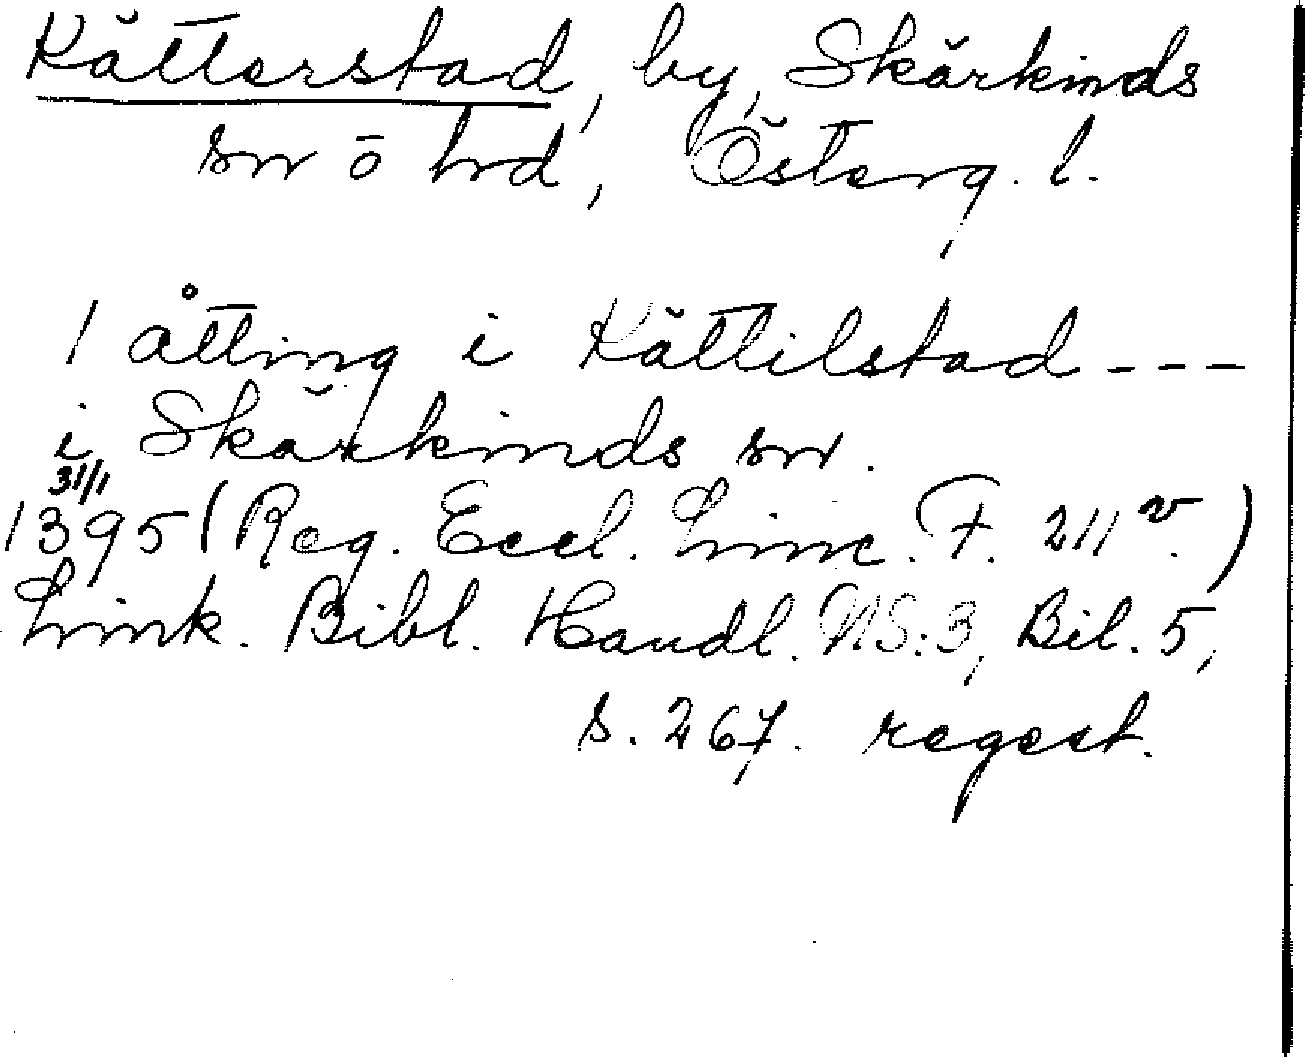 Kätterstad, by, Skärkinds
sn o hrd, Österg. l.
1 åtting i Kättilstad ---
i Skärkinds sn.
31/1
1395 (Reg. Eccl. Linc. F. 211 v.)
Link. Bibl. Handl. NS:3, Bil. 5,
s. 267. regest.